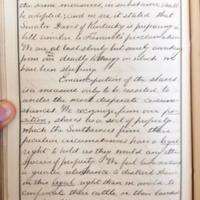 the same measures, in substance, shall
be adopted; and in av it stated that
Senator Davis of Kentucky is preparing a
bill similar to Fremont's proclamation
We are at last slowly but surely working
from in deadly lethargy in which we
have been sleeping.
Emancipation of the slaves
is a measure only to be resorted to
under the most desperate circum-
stances. We recognize, from our po-
sition, slaves as a sort of property
which the Southerners from their
peculiar circumstances have a legal
right to hold as they would any other
species of property. We feel however
a greater reluctance to disturb them
in this legal right than we would to
confiscate their cattle or their houses